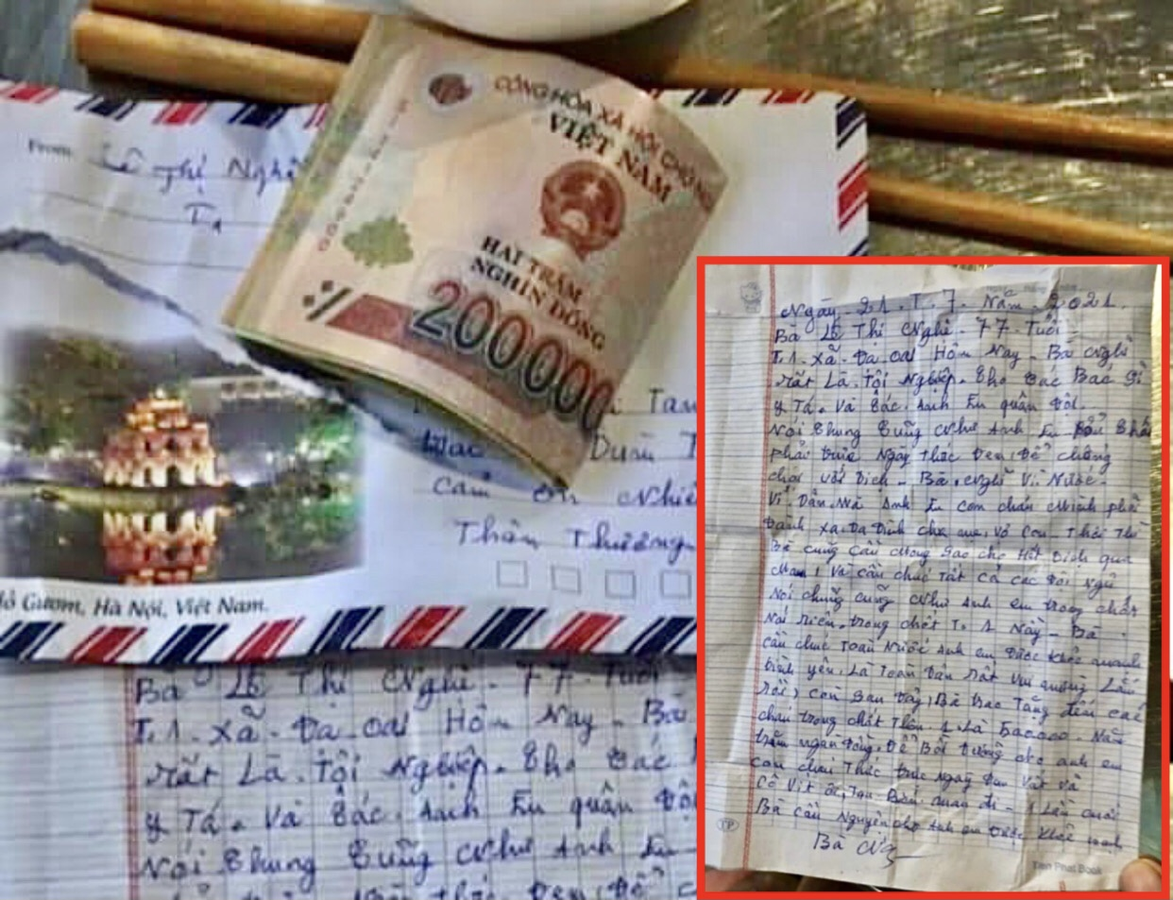 From:
Lê Thị Nghê
T1
CỘNG HÒA XÃ HỘI CHỦ NG
VIỆT NAM
HAI TRĂM
NGHÌN ĐỒNG
200000
Cảm ơn Nhiề
Thân Thương
Hồ Gươm, Hà Nội, Việt Nam.
Bà Lê Thi Nghê - 77 Tuổi
T.1. xã - Đạ oai Hôm Nay - Bà
rất Là tội Nghiệp. cho Bác
y Tá. và Bác. Anh Em quân Đội
Nói chung cũng như Anh Em
Ngày. 21. T. 7. Năm. 2021.
Bà Lê Thi Nghê - 77 Tuổi
T.1. xã - Đạ oai Hôm Nay - Bà Nghĩ
rất Là tội Nghiệp. cho Bác Bác Sĩ
y Tá. và Bác. Anh Em quân Đội.
Nói chung cũng như Anh Em
phải trực Ngày thức Đêm, Để chống
chọi với Dịch - Bà, Nghĩ Vì Nước
Vì Dân, Mà Anh Em con cháu Mình phải
Đành xa, Da Đình cha mẹ, vợ con - Thôi Thì
Bà cũng Cầu Mong Sao cho Hết Dịch qua
và cầu chúc tất cả các Đội Ngũ
Nói chung cũng như Anh em trong chốt
Nói riêng, trong chốt T. 1 Này - Bà
cầu chúc toàn Nước Anh em Được khỏe mạnh
bình yên. Là Toàn Dân rất vui sướng Lắm
rồi, còn sau Đây, Bà trao Tặng Đến các
cháu trong chốt Thôn. 1. Là 500000. Năm
trăm ngàn Đồng. Để Bồi Dưỡng cho anh em
con cháu Thức trực ngày Đêm Vất Vả
Cô Vít
Bà cầu Nguyện cho Anh em Được khỏe mạnh
Bà
TP
Tiến Phát Book